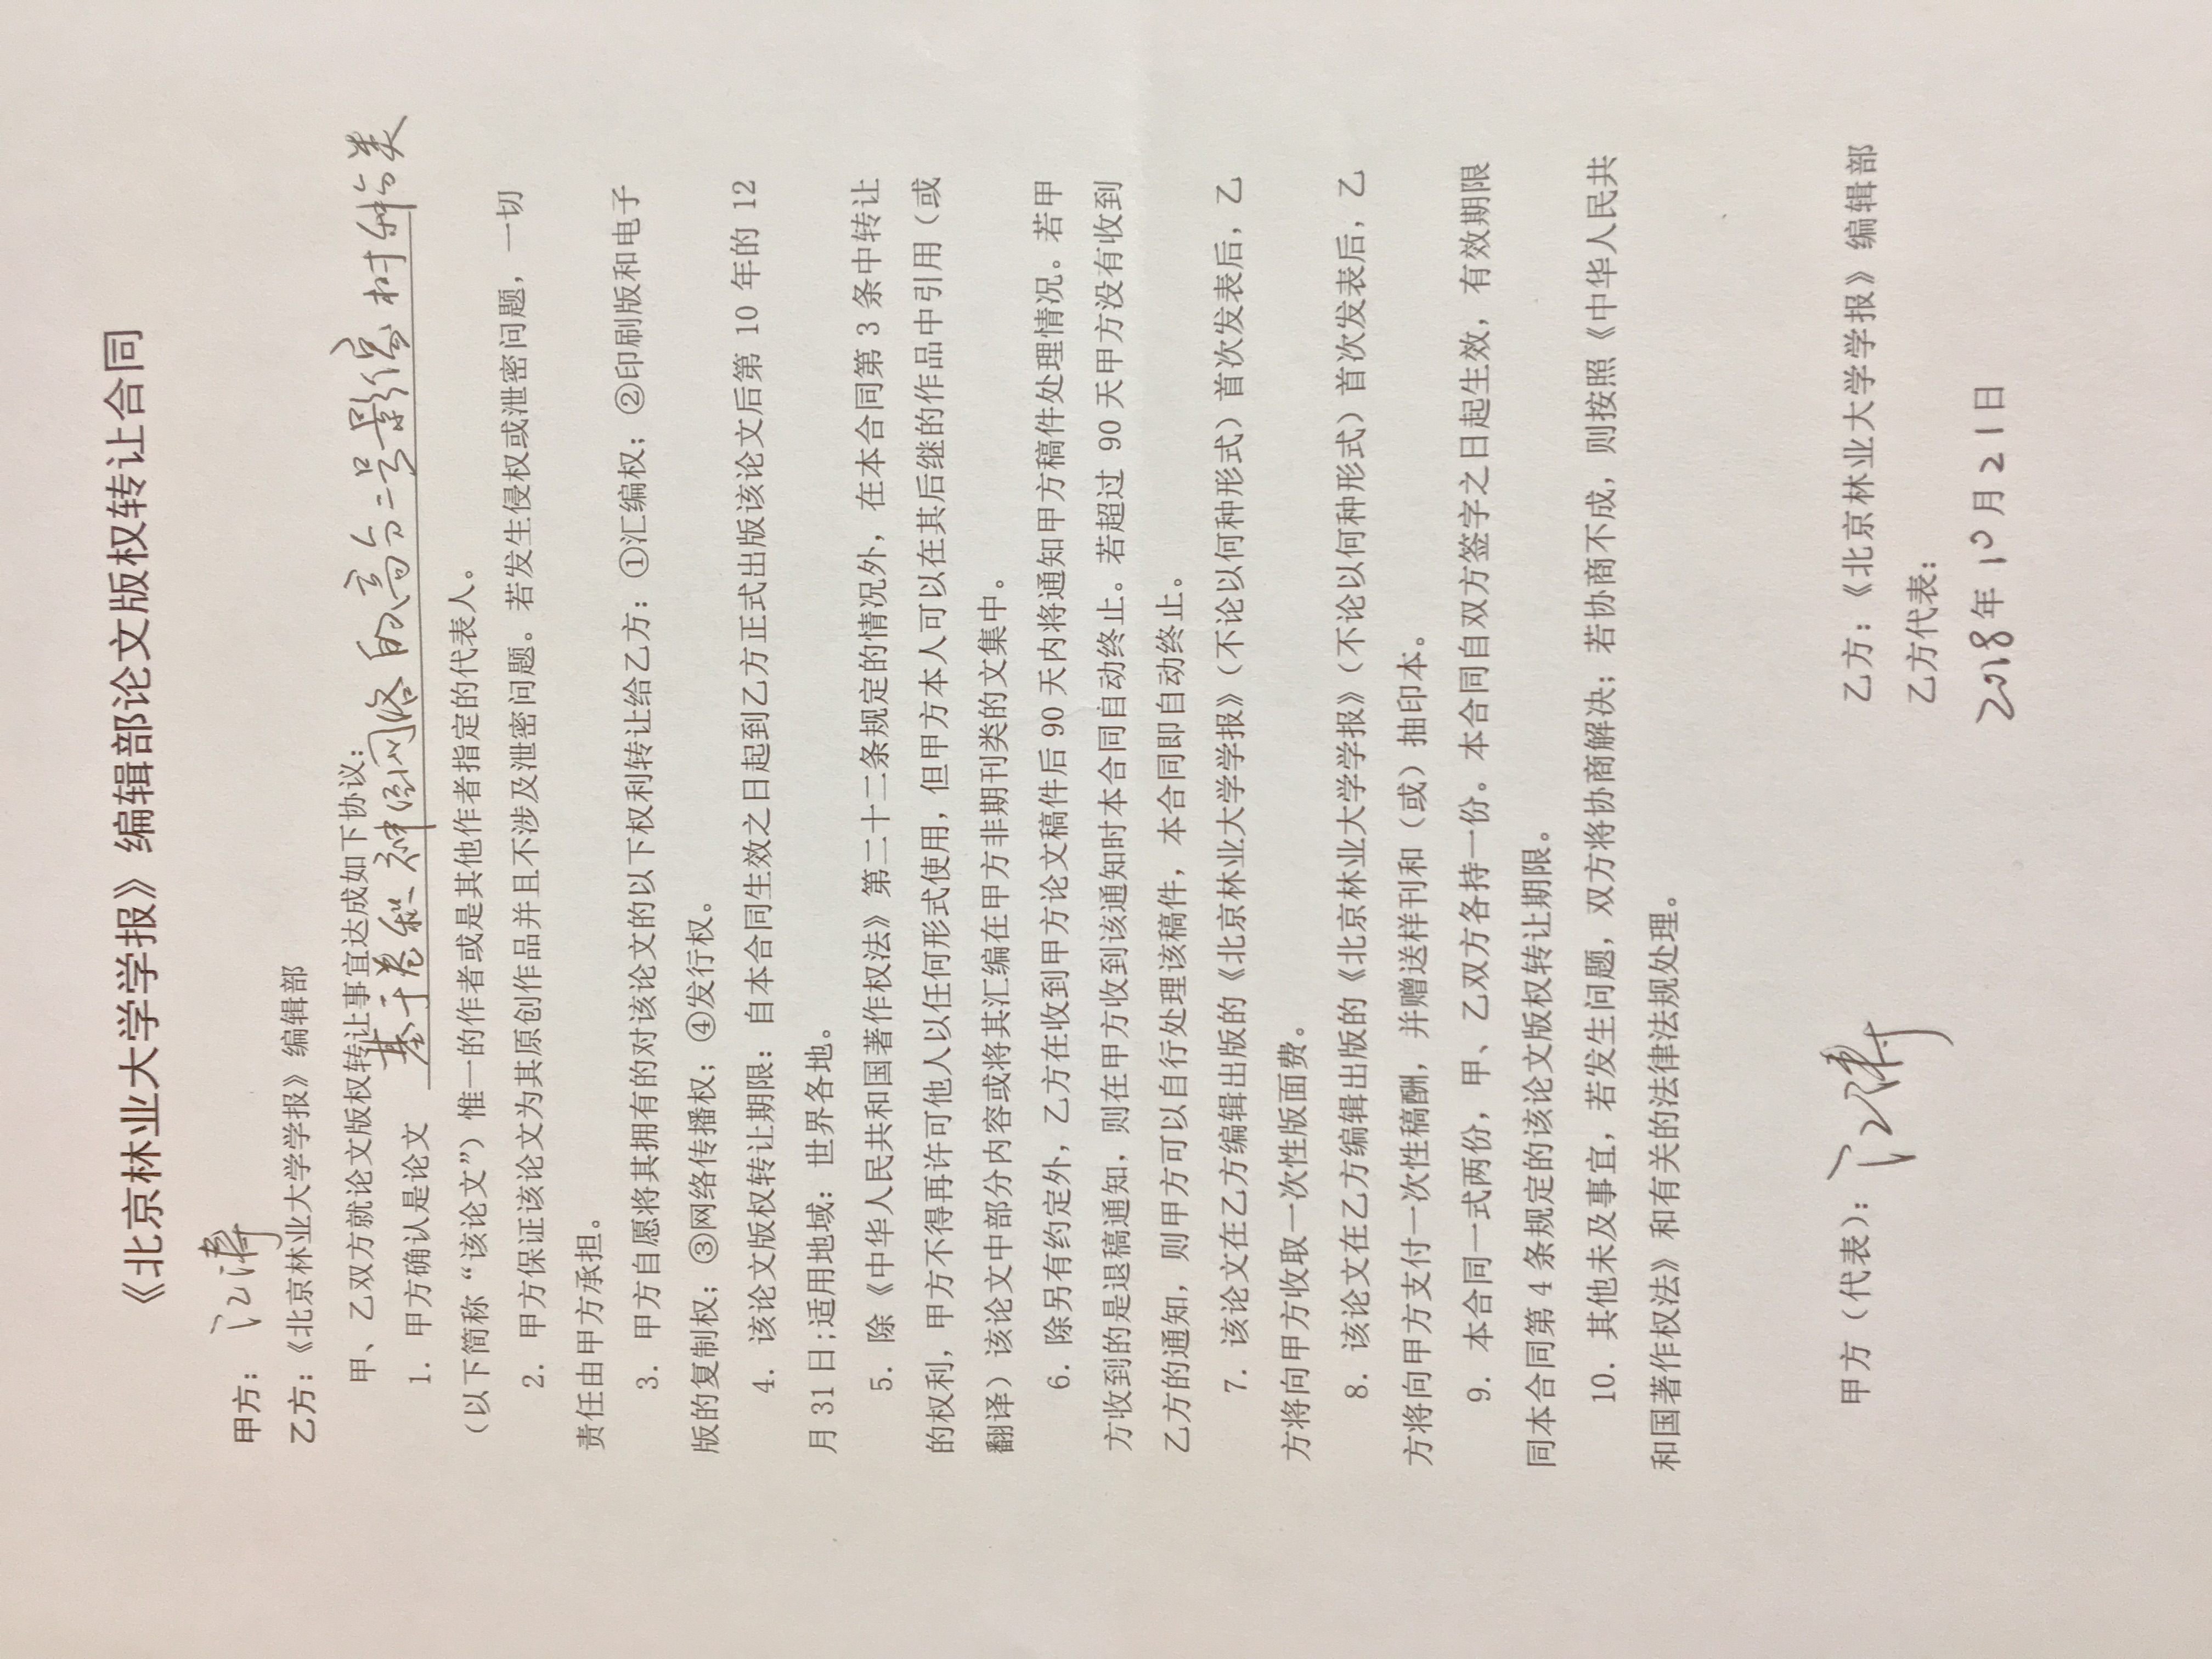 《北京林业大学学报》编辑部论文版权转让合同
甲方： 江涛
乙方：《北京林业大学学报》编辑部
甲、乙双方就论文版权转让事宜达成如下协议：
1. 甲方确认是论文 基于卷积神经网络的高分二号影像树种分类
（以下简称“该论文”）惟一的作者或是其他作者指定的代表人。
2. 甲方保证该论文为其原创作品并且不涉及泄密问题。若发生侵权或泄密问题，一切
责任由甲方承担。
3. 甲方自愿将其拥有的对该论文的以下权利转让给乙方：①汇编权；②印刷版和电子
版的复制权；③网络传播权；④发行权。
4. 该论文版权转让期限：自本合同生效之日起到乙方正式出版该论文后第 10 年的 12
月 31 日;适用地域：世界各地。
5. 除《中华人民共和国著作权法》第二十二条规定的情况外，在本合同第 3 条中转让
的权利，甲方不得再许可他人以任何形式使用，但甲方本人可以在其后继的作品中引用（或
翻译）该论文中部分内容或将其汇编在甲方非期刊类的文集中。
6. 除另有约定外，乙方在收到甲方论文稿件后 90 天内将通知甲方稿件处理情况。若甲
方收到的是退稿通知，则在甲方收到该通知时本合同自动终止。若超过 90 天甲方没有收到
乙方的通知，则甲方可以自行处理该稿件，本合同即自动终止。
7. 该论文在乙方编辑出版的《北京林业大学学报》（不论以何种形式）首次发表后，乙
方将向甲方收取一次性版面费。
8. 该论文在乙方编辑出版的《北京林业大学学报》（不论以何种形式）首次发表后，乙
方将向甲方支付一次性稿酬，并赠送样刊和（或）抽印本。
9. 本合同一式两份，甲、乙双方各持一份。本合同自双方签字之日起生效，有效期限
同本合同第 4 条规定的该论文版权转让期限。
10. 其他未及事宜，若发生问题，双方将协商解决；若协商不成，则按照《中华人民共
和国著作权法》和有关的法律法规处理。
甲方（代表）：江涛
乙方：《北京林业大学学报》编辑部
乙方代表：
2018年 10 月 21 日